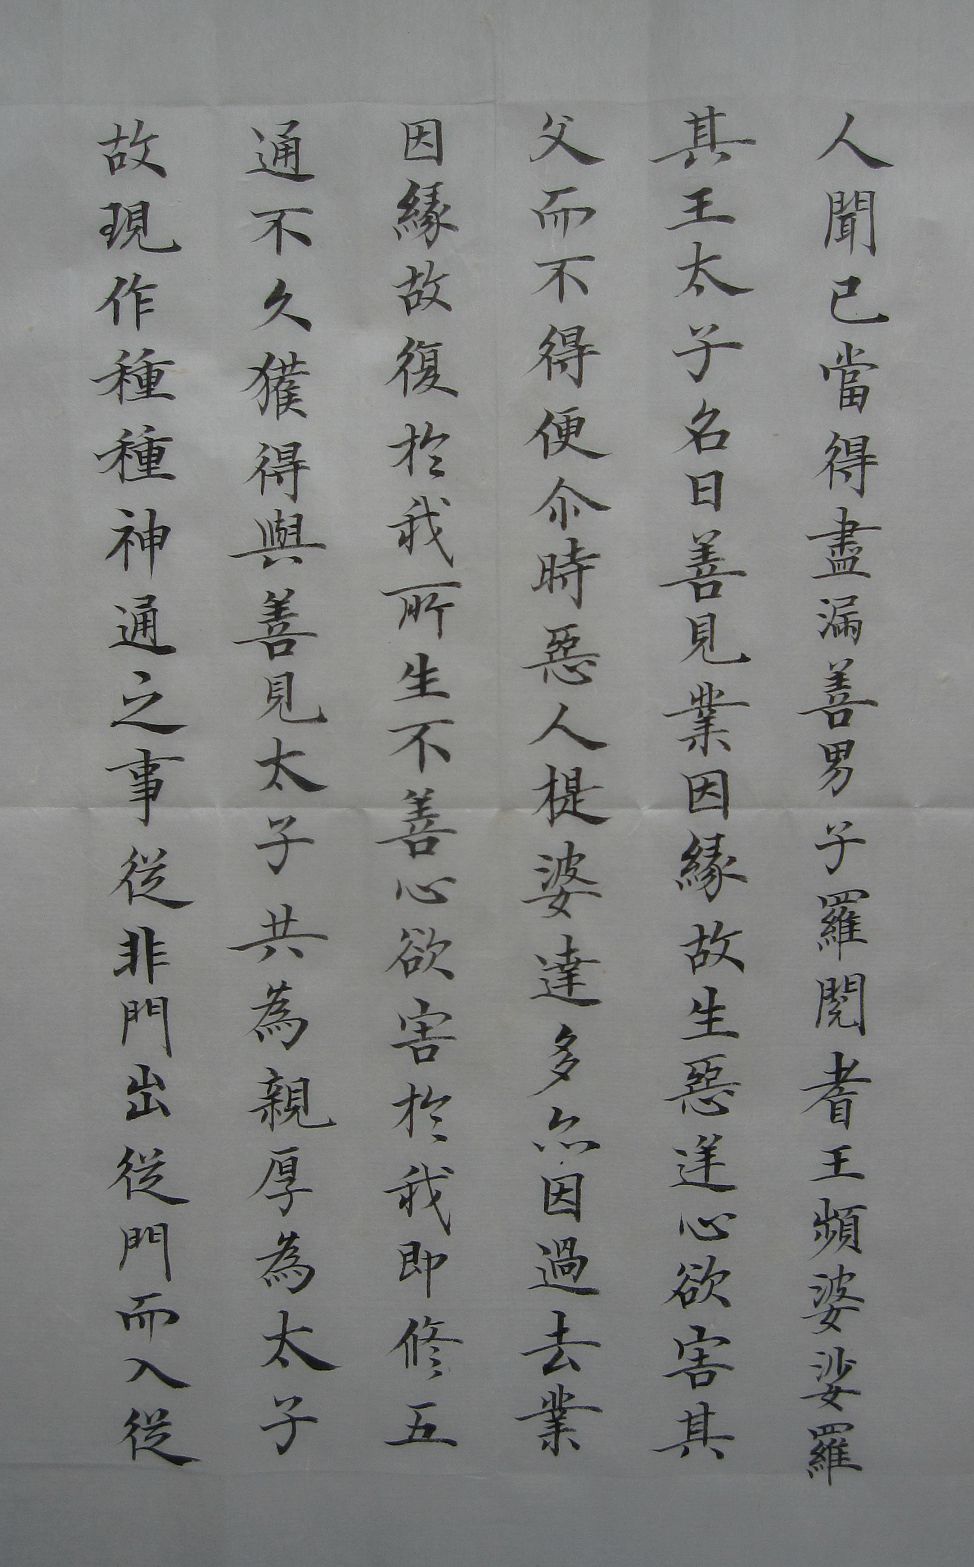 人聞已當得盡漏善男子羅閱耆王頻婆娑羅
其王太子名曰善見業因緣故生惡逆心欲害其
父而不得便尒時惡人提婆達多亦因過去業
因緣故復於我所生不善心欲害於我即修五
通不久獲得與善見太子共為親厚為太子
故現作種種神通之事從非門出從門而入從